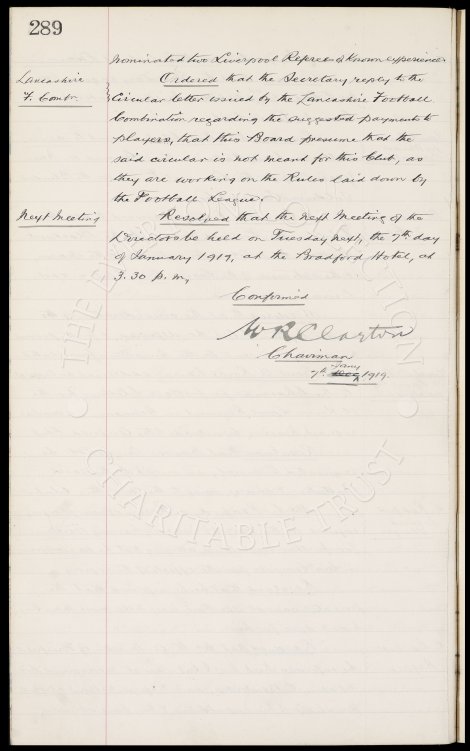 289
nominated two Liverpool Referees of known experience.
Lancashire
F. Combn.
Ordered that the Secretary reply to the
Circular letter issued by the Lancashire Football
Combination regarding the suggested payments to
players, that this Board presume that the
said circular is not meant for this Club, as
they are working on the Rules laid down by
the Football League.
Next Meeting
Resolved that the next Meeting of the
Directors be held on Tuesday next, the 7th day
of January 1919, at the Bradford Hotel, at
3.30 p.m,
Confirmed
W R Clayton
Chairman
7th Jany 1919.
CHARITABLE TRUST